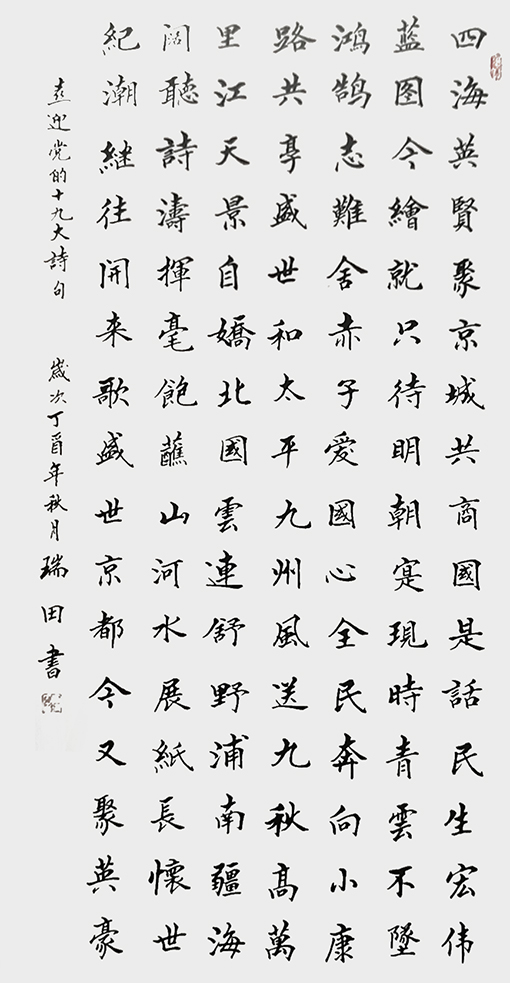 四海英賢聚京城共商國是話民生宏伟
蓝图今繪就只待明朝寔現時青雲不墜
鴻鹄志難舍赤子爱國心全民奔向小康
路共享盛世和太平九州風送九秋高萬
里江天景自嬌北國雲連舒野浦南疆海
阔聽詩濤揮毫飽蘸山河水展紙長懷世
紀潮继往開来歌盛世京都今又聚英豪
喜迎党的十九大詩句 歲次丁酉年秋月 瑞田書